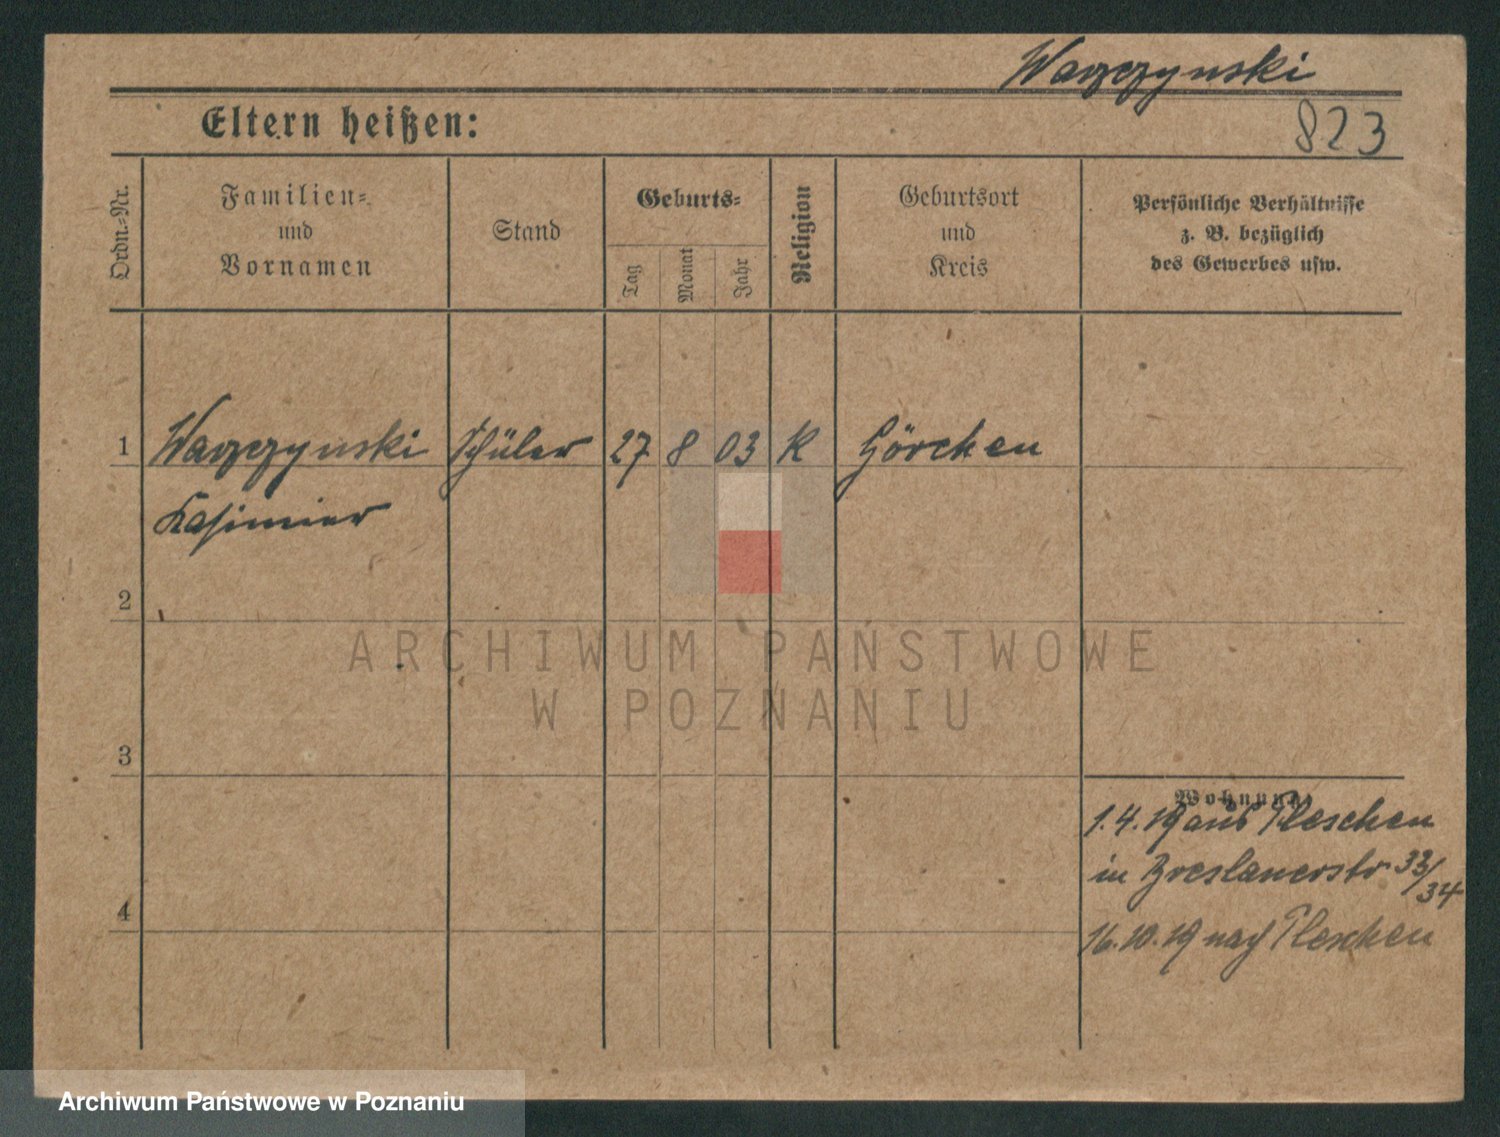 Warzczynski
823
Eltern heißen:
Ordn.-Nr.
Familien- und Vornamen
Stand
Geburts-
Tag
Monat
Jahr
Religion
Geburtsort und Kreis
Persönliche Verhältnisse
z. B. bezüglich
des Gewerbes usw.
1 Warzczynski Schüler 27 8 03 K Görchen
Kasimier
2
ARCHIWUM PAŃSTWOWE
W POZNANIU
3
Wohnung:
1.4.19 aus Pleschen
in Breslauerstr 33/34
4
16.10.19 nach Pleschen
Archiwum Państwowe w Poznaniu